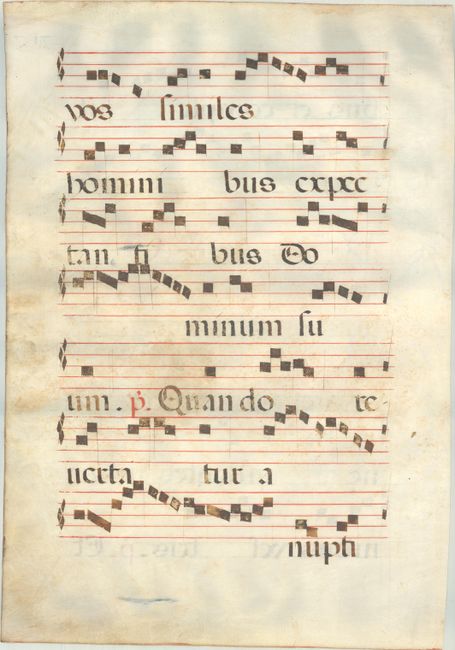 vos similes
homini bus expec
tan ti bus Do
minum su
um. p. Quan do re
uerta tur a
nupti